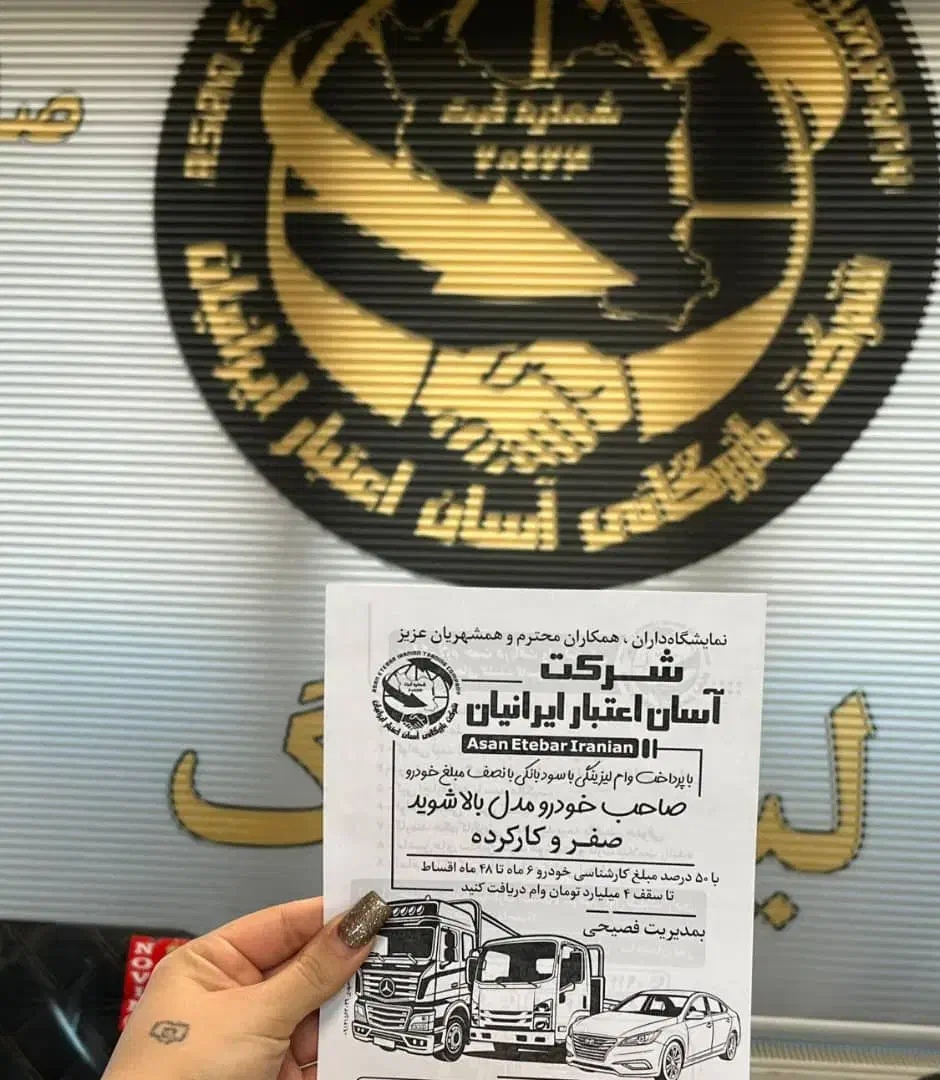 شماره ثبت
شرکت بازرگانی آسان اعتبار ایرانیان
نمایشگاه‌داران ، همکاران محترم و همشهریان عزیز
شرکت
آسان اعتبار ایرانیان
Asan Etebar Iranian
با پرداخت وام لیزینگی با سود بانکی با نصف مبلغ خودرو
صاحب خودرو مدل بالا شوید
صفر و کارکرده
با ۵۰ درصد مبلغ کارشناسی خودرو ۶ ماه تا ۴۸ ماه اقساط
تا سقف ۴ میلیارد تومان وام دریافت کنید
بمدیریت فصیحی
ASAN ETEBAR IRANIAN TRADING COMPANY
شماره ثبت
شرکت بازرگانی آسان اعتبار ایرانیان